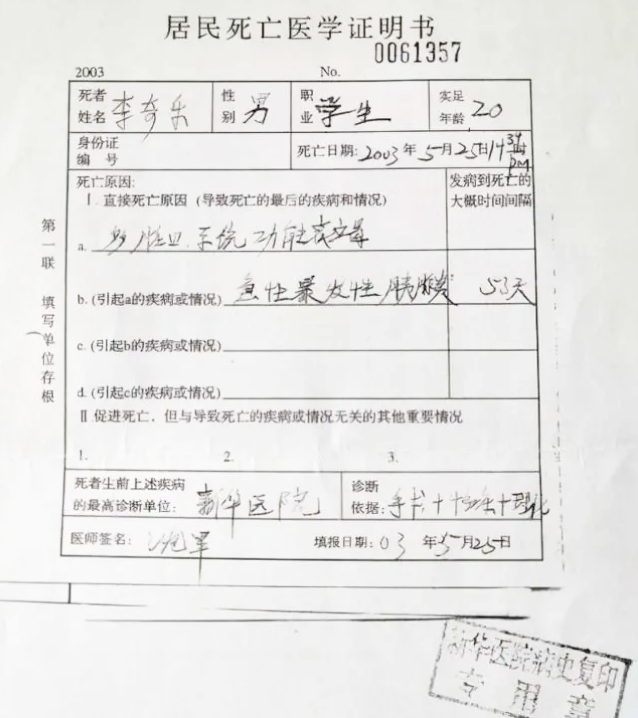 居民死亡医学证明书
0061357
2003 No.
死者姓名 李奇乐 性别 男 职业 学生 实足年龄 20
身份证编号 死亡日期: 2003年5月25日14 39 时 PM
死亡原因: 发病到死亡的
Ⅰ. 直接死亡原因 (导致死亡的最后的疾病和情况) 大概时间间隔
a. 系统功能衰竭
b. (引起a的疾病或情况) 急性暴发性胰腺炎 53天
c. (引起b的疾病或情况)
d. (引起c的疾病或情况)
Ⅱ 促进死亡,但与导致死亡的疾病或情况无关的其他重要情况
1. 2. 3.
死者生前上述疾病 诊断
的最高诊断单位: 新华医院 依据: 手术+ +理化
医师签名: 填报日期: 03 年5月25日
第一联 填写单位存根
新华医院病史复印
专用章